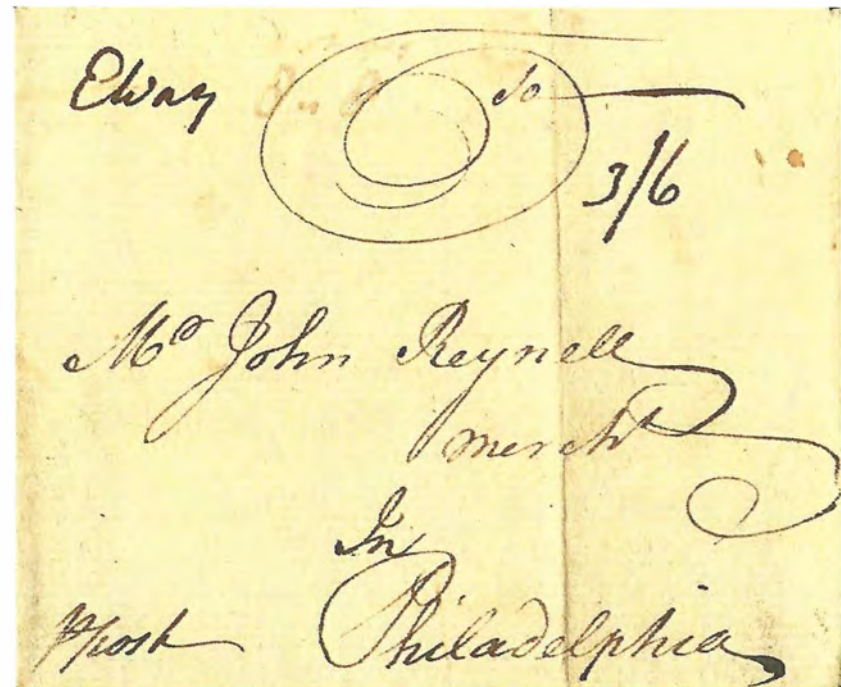 To
3/6
Mr John Reynell
mercht
In
Philadelphia